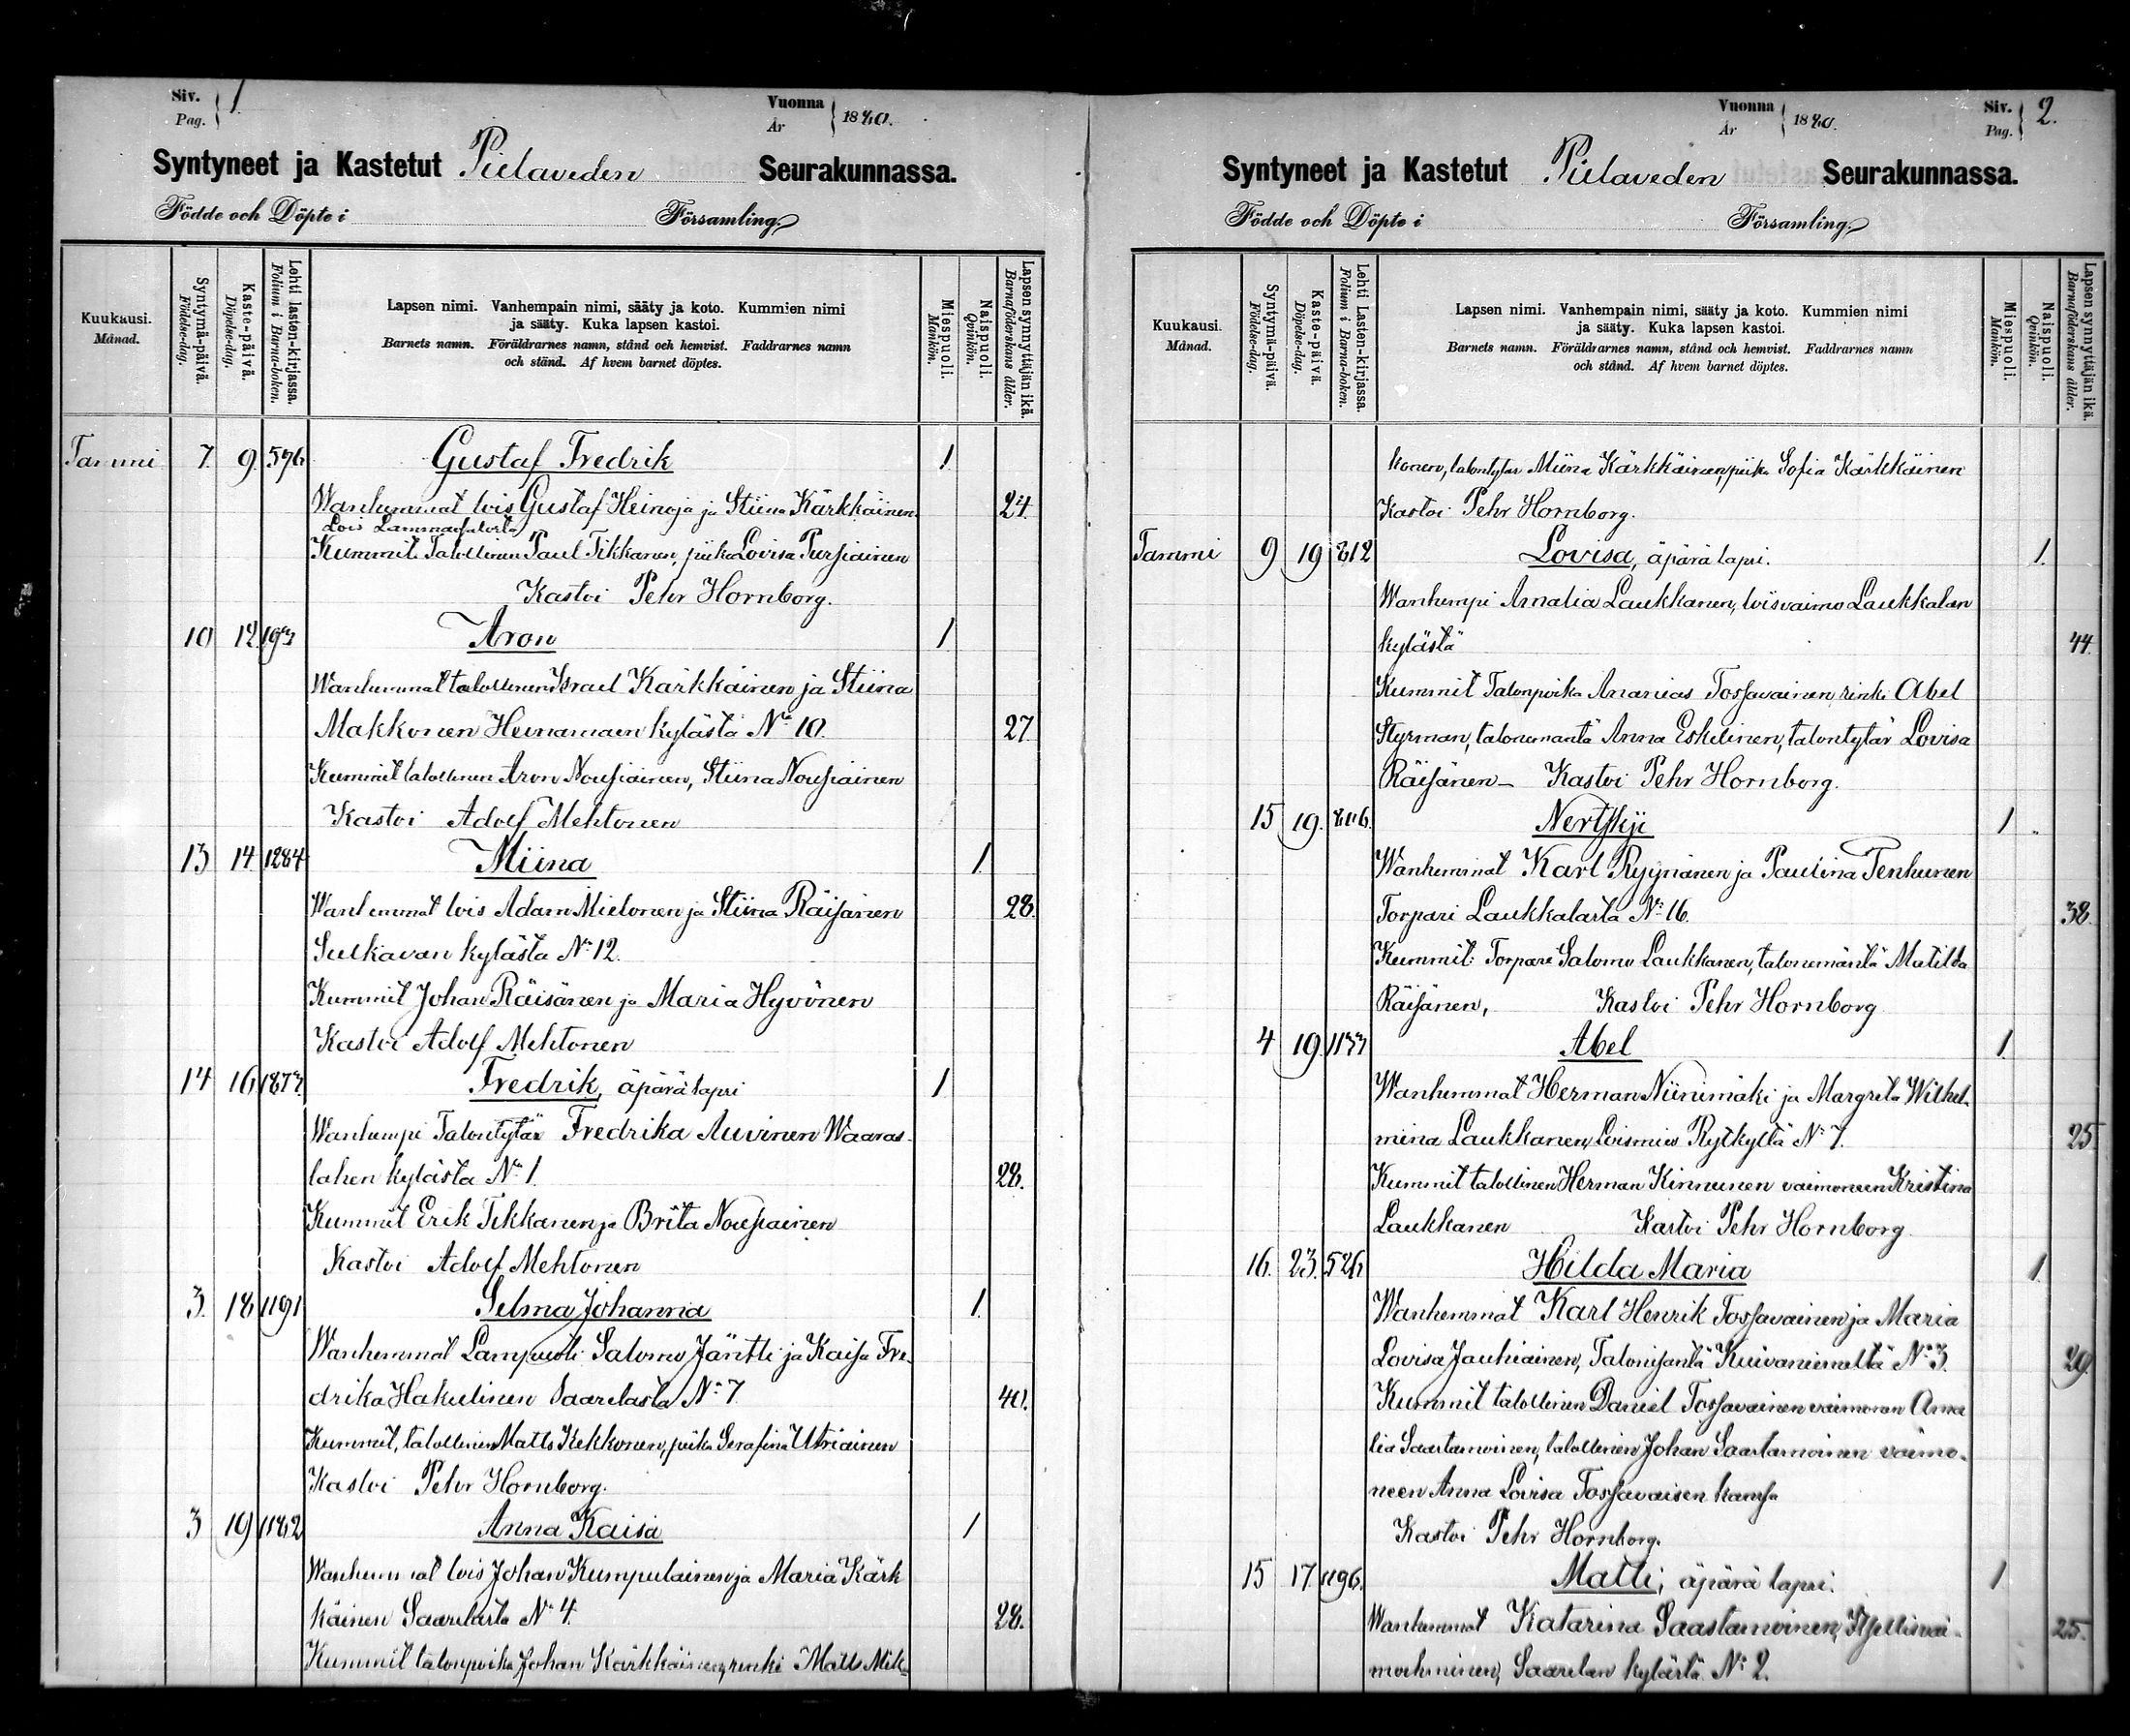 Siv. Pag. 1.
Vuonna År 1880.
Syntyneet ja Kastetut Pielaveden Seurakunnassa.
Födde och Döpte i Församling.
Kuukausi. Månad.
Syntymä-päivä. Födelse-dag.
Kaste-päivä. Döpelse-dag.
Lehti lasten-kirjassa. Folium i Barna-boken.
Lapsen nimi. Vanhempain nimi, sääty ja koto. Kummien nimi
ja sääty. Kuka lapsen kastoi.
Barnets namn. Föräldrarnes namn, stånd och hemvist. Faddrarnes namn
och stånd. Af hvem barnet döptes.
Miespuoli. Mankön.
Naispuoli. Qvinkön.
Lapsen synnyttäjän ikä. Barnaföderskans ålder.
Tammi 7. 9. 576 Gustaf Fredrik 1.
Wanhemmat lois Gustaf Heinoja ja Stiina Kärkkäinen 24.
Lois
Kummit Talollinen Paul Tikkanen, piika Lovisa Pursiainen
Kastoi Pehr Hornborg.
10 12 Aron 1
Wanhemmat talollinen Israel Kärkkäinen ja Stiina
Makkonen Heinämäen kylästä No 10. 27.
Kummit talollinen Aron Nousiainen, Stiina Nousiainen
Kastoi Adolf Mehtonen
13 14. 1284 Miina 1.
Wanhemmat lois Adam Mielonen ja Stiina Räisänen 28.
Sulkavan kylästä No 12.
Kummit Johan Räisänen ja Maria Hyvönen
Kastoi Adolf Mehtonen
14 16. 1873. Fredrik, äpärä lapsi 1
Wanhempi Talontytär Fredrika Auvinen Waaras-
lahen kylästä No 1. 28.
Kummit Erik Tikkanen ja Brita Nousiainen
Kastoi Adolf Mehtonen
3. 18 1191 Selma Johanna 1.
Wanhemmat Lampuoti Salomo Jäntti ja Kaisa Fre-
drika Hakulinen Saarelasta No 7. 40.
Kummit, talollinen Matts Kekkonen, piika Serafina Utriainen
Kastoi Pehr Hornborg.
3 19 1182 Anna Kaisa 1
Wanhemmat lois Johan Kumpulainen ja Maria Kärk
käinen Saarelasta No 4. 28.
Kummit talonpoika Johan Kärkkäinen, renki Matts Mik-
Vuonna År 1880.
Siv. Pag. 2.
Syntyneet ja Kastetut Pielaveden Seurakunnassa.
Födde och Döpte i Församling.
Kuukausi. Månad.
Syntymä-päivä. Födelse-dag.
Kaste-päivä. Döpelse-dag.
Lehti Lasten-kirjassa. Folium i Barna-boken.
Lapsen nimi. Vanhempain nimi, sääty ja koto. Kummien nimi
ja sääty. Kuka lapsen kastoi.
Barnets namn. Föräldrarnes namn, stånd och hemvist. Faddrarnes namn
och stånd. Af hvem barnet döptes.
Miespuoli. Mankön.
Naispuoli. Qvinkön.
Lapsen synnyttäjän ikä. Barnaföderskans ålder.
konen, talontytär Miina Kärkkäinen, piika Sofia Kärkkäinen
Kastoi Pehr Hornborg.
Tammi 9 19 812 Lovisa, äpärä lapsi. 1.
Wanhempi Amalia Laukkanen, loisvaimo Laukkalan
kylästä 44.
Kummit Talonpoika Ananias Tossavainen, renki Abel
Styrman, talonemäntä Anna Eskelinen, talontytär Lovisa
Räisänen - Kastoi Pehr Hornborg.
15 19. 1
Wanhemmat Karl Ryynänen ja Paulina Tenhunen
Torpari Laukkalasta No 16. 38.
Kummit: Torpari Salomo Laukkanen, talonemäntä Matilda
Räisänen, Kastoi Pehr Hornborg
4 19 1133 Abel 1.
Wanhemmat Herman Niinimäki ja Margreta Wilhel-
mina Laukkanen, Loismies Rytkyltä No 7. 25
Kummit talollinen Herman Kinnunen vaimoneen Kristina
Laukkanen Kastoi Pehr Hornborg
16. 23. 526 Hilda Maria 1.
Wanhemmat Karl Henrik Tossavainen ja Maria
Lovisa Jauhiainen, Talonisäntä Kuivaniemeltä No 3. 29.
Kummit talollinen Daniel Tossavainen vaimonsa Ama
lia Saastamoinen, talollinen Johan Saastamoinen vaimo-
neen Anna Lovisa Tossavaisen kanssa
Kastoi Pehr Hornborg.
15 17 1196. Matti, äpärä lapsi. 1
Wanhemmat Katarina Saastamoinen, 25.
Saarelan kylästä No 2.